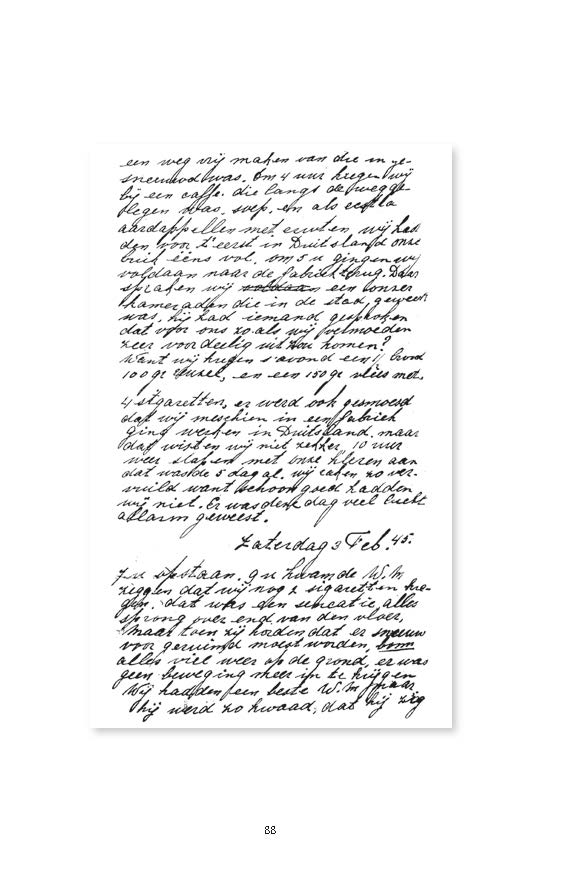 een weg vrij maken van die in ge-
sneeuwd was. Om 4 uur kregen wij
bij een caffe. die langs de wegge
legen was, soep. en als extra
aardappellen met erwten, wij had
den voor 't eerst in Duitsland onze
buik eens vol. om 5 u gingen wij
voldaan naar de fabriek terug. Daar
spraken wij een onzer
kameraden die in de stad, geweest
was. hij had iemand gesproken
dat voor ons zo als wij vermoeden
zeer voordeelig uit zou komen?
Want wij kregen s'avond een 1/ brood
100 gr suiker, en een 150 gr vlees met.
4 sigaretten, er werd ook gesmoesd
dat wij meschien in een fabriek
ging werken in Duitsland. maar
daf wisten wij niet zekker, 10 uur
weer slapen met onze kleren aan
dat was de 5 dag al. wij zaten zo ver-
vuild want schoon goed hadden
wij niet. Er was deze dag veel lucht
allarm geweest.
Zaterdag 3 Feb. 45.
7 u opstaan. 9 u kwam de W.M
zeggen dat wij nog 2 sigaretten kre-
gen. dat was een sencatie, alles
sprong over end van den vloer,
maar toen zij horden, dat er sneeuw
voor geruimd moest worden, bom
alles viel weer op de grond, er was
geen beweging meer in te krijgen
Wij hadden een beste W.M maar
hij werd zo kwaad, dat hij zig
88